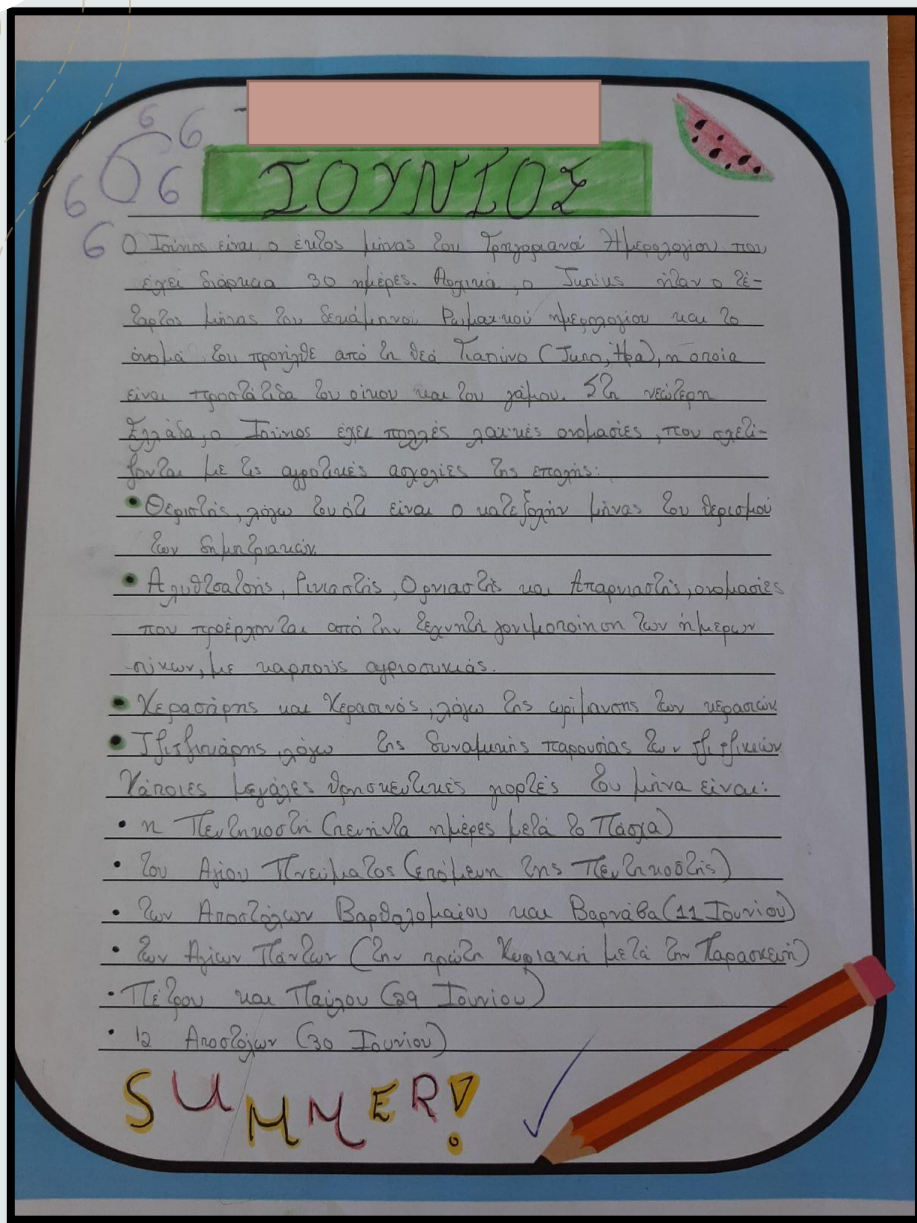 6 6 6 6 6 6
ΙΟΥΝΙΟΣ
Ο Ιούνιος είναι ο έκτος μήνας του Γρηγοριανού Ημερολογίου που
έχει διάρκεια 30 ημέρες. Αρχικά, ο Junius ήταν ο τέ-
ταρτος μήνας του δεκάμηνου Ρωμαϊκού ημερολογίου και το
όνομά του προήλθε από τη θεά (Juno, Ήρα), η οποία
είναι προστάτιδα του οίκου και του γάμου. Στη νεώτερη
Ελλάδα, ο Ιούνιος έχει πολλές λαϊκές ονομασίες, που σχετί-
ζονται με τις αγροτικές ασχολίες της εποχής:
• Θεριστής, λόγω του ότι είναι ο κατεξοχήν μήνας του θερισμού
των δημητριακών.
• Ρινιαστής, Ορνιαστής και Απαρνιαστής, ονομασίες
που προέρχονται από την τεχνητή γονιμοποίηση των ήμερων
σύκων, με καρπούς αγριοσυκιάς.
• Κερασάρης και Κερασινός, λόγω της ωρίμανσης των κερασιών.
• Τζιτζικάρης, λόγω της δυναμικής παρουσίας των τζιτζικιών.
Κάποιες μεγάλες θρησκευτικές γιορτές του μήνα είναι:
• η Πεντηκοστή (πενήντα ημέρες μετά το Πάσχα)
• του Αγίου Πνεύματος (επόμενη της Πεντηκοστής)
• των Αποστόλων Βαρθολομαίου και Βαρνάβα (11 Ιουνίου)
• των Αγίων Πάντων (την πρώτη Κυριακή μετά την Παρασκευή)
• Πέτρου και Παύλου (29 Ιουνίου)
• 12 Αποστόλων (30 Ιουνίου)
SUMMER!